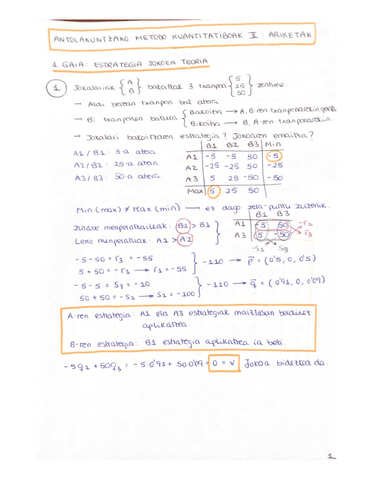 ANTOLAKUNTZAKO METODO KUANTITATIBOAK II - ARIKETAK
1. GAIA: ESTRATEGIA JOKOEN TEORIA
1. Jokalariak { A B } bakoitzak 3 txanpon { 5 25 50 } zentimo
→ Aldi berean txanpon bat atera
→ B: txanponen batura { Bakoitia → A, B-ren
Bikoitia → B, A-ren
→ Jokalari bakoitzaren estrategia? Jokoaren emaitza?
A1 / B1: 5-a atera.
A2 / B2: 25-a atera.
A3 / B3: 50-a atera.
B1 B2 B3 Min
A1 -5 -5 50 -5
A2 -25 -25 50 -25
A3 5 25 -50 -50
Max 5 25 50
Min (max) ≠ Max (min) → ez dago zela-puntu
Zutabe B2 > B1
Lerro A1 > A2
B1 B3
A1 -5 50 -r1
A3 5 -50 r3
-s1 s3
-5-50 = r3 = -55
5+50 = -r1 → r1 = -55
} -110 → p = (0'5, 0, 0'5)
-5-5 = s3 = -10
50+50 = -s1 → s1 = -100
} -110 → q = (0'91, 0, 0'09)
A-ren estrategia: A1 eta A3 estrategiak maiztasun berdinez aplikatzea
B-ren estrategia: B1 estrategia aplikatzea ia beti.
-5q1 + 50q3 = -5·0'91 + 50·0'09 = 0 = v Jokoa bidezkoa da.
1